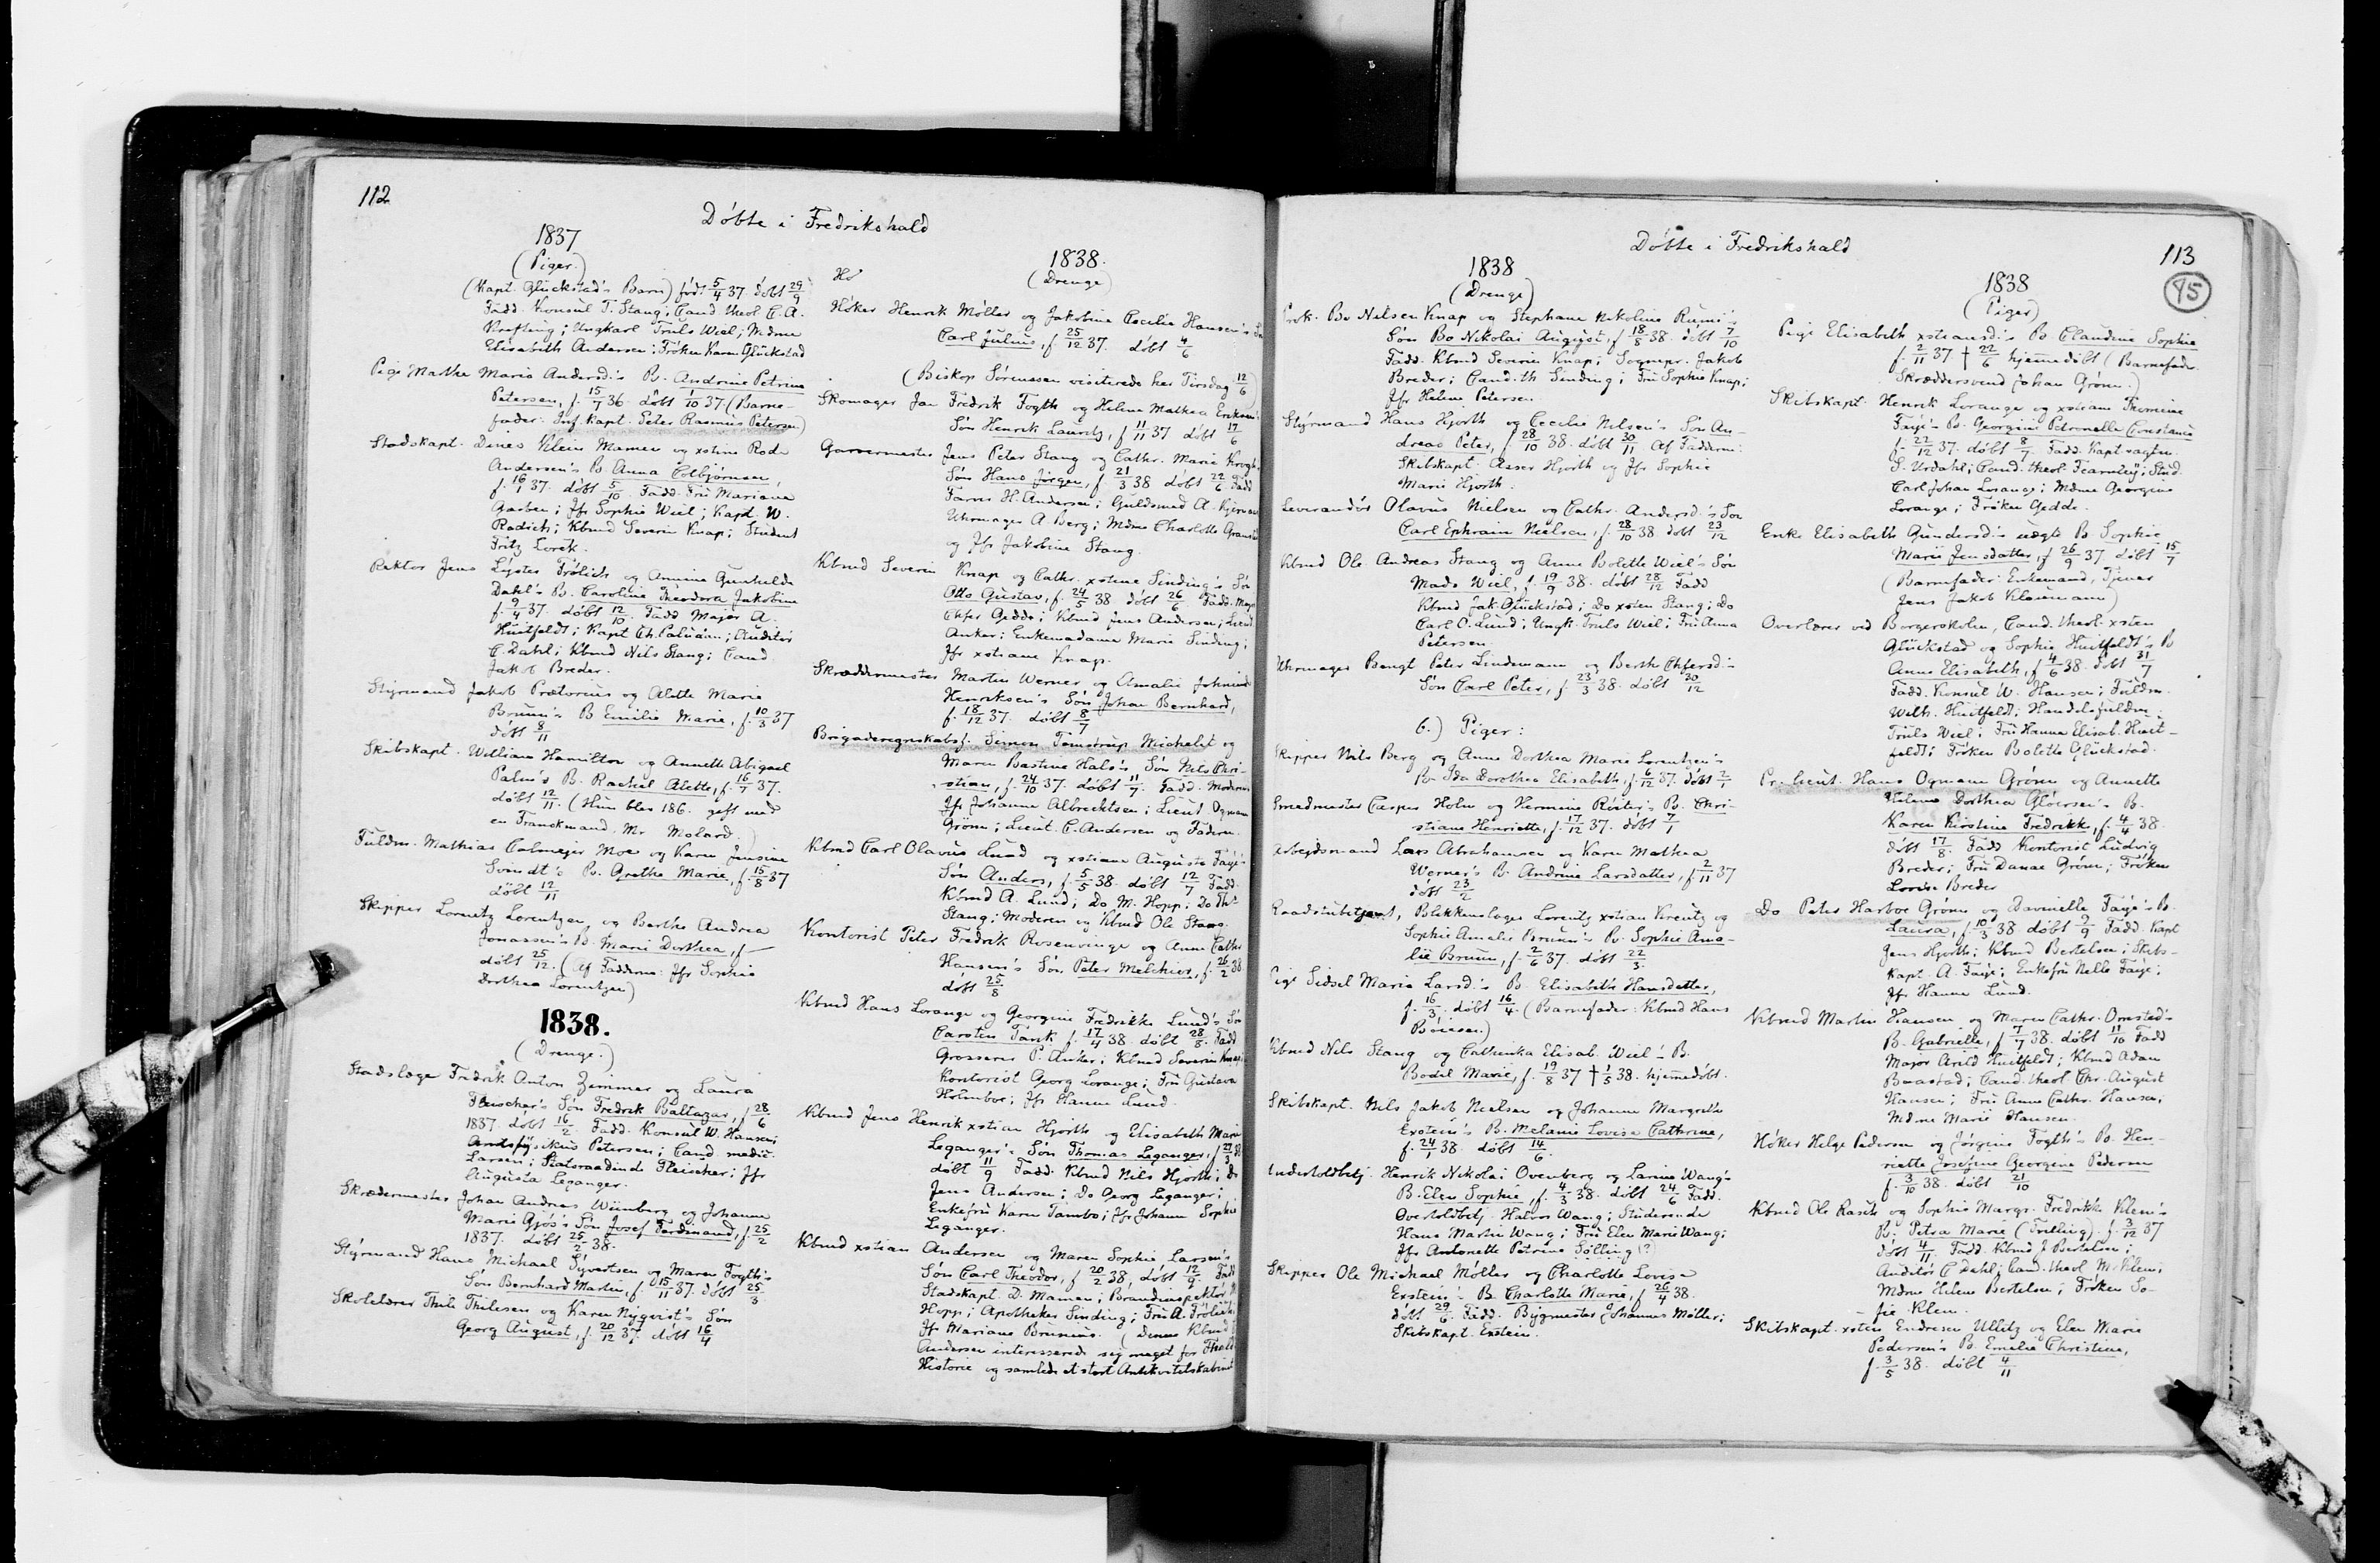 112
Döbte i Fredrikshald
1837
(Piger.)
(Kapt. Glückstad's Barn) födt 5/4 37 döbt 29/9
Fadd. Konsul T. Stang; Cand. theol. C. A.
Krefting; Ungkarl Truls Wiel; Mdme
Elisabeth Andersen; Fröken Karen Glückstad
Pige Mathe Marie Andersd.'s B. Andrine Petrine
Petersen, f. 15/7 36 döbt 1/10 37. (Barne-
fader: Inf. Kapt. Peter Rasmus Petersen)
Stadskapt. Denes Klein Mamen og xstine Rod
Andersen's B. Anna Colbjörnsen,
f. 16/1 37. döbt 5/10. Fadd. Frú Mariane
Garben; Jfr Sophie Wiel; Kapt. W.
Radich; Kbmd Severin Knap; Student
Fritz Lorck.
Rektor Jens Lyster Frölich og Annine Gunhilda
Dahl's B. Caroline Theodora Jakobine
f. 9/4 37. döbt 12/10. Fadd Major A.
Huitfeldt; Kapt Th. Paludan; Auditör
C. Dahl; Kbmd Nils Stang; Cand
Jakob Breder.
Styrmand Jakob Prætorius og Alette Marie
Bruun's B Emilie Marie, f. 10/3 37
döbt 8/11
Skibskapt. William Hamilton og Annette Abigael
Palm's B. Rachel Alette, f. 16/7 37.
döbt 12/11. (Hun blev 186. gift med
en Franskmand, Mr Molard.)
Fuldm. Mathias Calmejer Moe og Karen Jensine
Svindt's B. Grethe Marie, f. 15/8 37
döbt 12/11
Skipper Lorentz Lorentzen, og Berthe Andrea
Jonassen's B. Marie Dorthea, f —
döbt 25/12. (Af Fadderne: Jfr Sophie
Dorthea Lorentzen)
1838.
(Drenge.)
Stadslæge Fredrik Anton Zimmer og Laura
Fleischer's Sön Fredrik Baltazar, f. 28/6
1837. döbt 16/2. Fadd. Konsul W. Hansen;
Amtsfysikus Petersen; Cand. medic.
Larsen; Statsraadinde Fleischer; Jfr
Augusta Leganger.
Skrædermester Johan Andreas Wünberg og Johanne
Marie Gjös's Sön Josef Ferdinand, f. 25/2
1837. döbt 25/2 38.
Styrmand Hans Michael Syvertsen og Maren Fogth's
Sön Bernhard Martin, f. 15/11 37. döbt 25/3
Skolelærer Thile Thilesen og Karen Nyqvist's Sön
Georg August, f. 20/12 37. döbt 16/4
1838.
Hö (Drenge)
Höker Henrik Möller og Jakobine Cecilie Hansen's Sön
Carl Julius, f 25/12 37. döbt 4/6
(Biskop Sörenssen visiterede her Tirsdag 12/6)
Skomager Jan Fredrik Fogth og Helene Mathea Eriksen's
Sön Henrik Lauritz, f 11/11 37 döbt 17/6
Garvermester Jens Peter Stang og Cathr. Marie Krogh's
Sön Hans Jörgen, f 21/3 38 döbt 22/6. Fadd
Farver H. Andersen; Guldsmed A. Kjerman
Uhrmager A. Berg; Mdme Charlotte
og Jfr Jakobine Stang.
Kbmd Severin Knap og Cathr. xstine Sinding's Sön
Otto Gustav, f. 24/5 38 döbt 26/6 Fadd. Major
Chfer Gedde; Kbmd Jens Andersen; Lieut.
Anker; Enkemadame Marie Sinding;
Jfr xstiane Knap.
Skræddermester Martin Werner og Amalie
Henriksen's Sön Johan Bernhard,
f. 18/12 37. döbt 8/7
Brigaderegnskabsf. Simon Tamstrup Michelet og
Maren Bastine Hals's Sön Nils Chri-
stian, f. 24/10 37. döbt 11/7. Fadd. Moderen
Jfr Johanne Albrechtsen; Lieut Ogmann
Grönn; Lieut. C. Andersen og Faderen.
Kbmd Carl Olavus Lund og xstiane Augusta Faye's
Sön Anders, f. 5/5 38. döbt 12/7 Fadd.
Kbmd A. Lund; Do M. Hopp; Do Ths
Stang; Moderen og Kbmd Ole Stang.
Kontorist Peter Fredrik Rosenvinge og Anne Cathr
Hansen's Sön Peter Melchior, f. 26/2 38
döbt 25/8
Kbmd Hans Lorange og Georgine Fredrikke Lund's Sön
Carsten Tank f. 17/4 38. döbt 28/8. Fadd
Grosserer P. Anker; Kbmd Severin Knap;
Kontorist Georg Lorange; Frú Gustava
Holmboe; Jfr Hanne Lund.
Kbmd Jens Henrik xstian Hjorth og Elisabeth Marie
Leganger's Sön Thomas Leganger, f 27/3 38
döbt 11/9 Fadd. Kbmd Nils Hjorth; Do
Jens Andersen; Do Georg Leganger;
Enkefrú Karen Tambo; Jfr Johanne Sophie
Leganger.
Kbmd xstian Andersen og Maren Sophie Larsen's
Sön Carl Theodor, f 20/2 38, döbt 12/9 Fadd
Stadskapt. D. Mamen; Brandinspektör
Hopp; Apotheker Sinding; Frú A. Frölich;
Jfr Mariane Brunius. (Denne Kbmd
Andersen interesserede sig meget for Fhalds
Historie og samlede et stort Antikvitetskabinet
Döbte i Fredrikshald
113
95
1838
(Drenge)
Prok. Bo Nilsen Knap og Stephane Nikoline Rumi's
Sön Bo Nikolai August, f 18/8 38. döbt 7/10
Fadd. Kbmd Severin Knap; Sogнеpr. Jakob
Breder; Cand. th Sinding; Frú Sophie Knap;
Jfr Helene Petersen
Styrmand Hans Hjorth og Cecilie Nilsen's Sön An-
dreas Peter, f. 28/10 38. döbt 30/11 Af Fadderne:
Skibskapt. Asser Hjorth og Jfr Sophie
Marie Hjorth.
Leverandör Olavus Nielsen og Cathr. Andersd.'s Sön
Carl Ephraim Nielsen, f. 28/10 38 döbt 23/12
Kbmd Ole Andreas Stang og Anne Bolette Wiel's Sön
Mads Wiel, f. 19/9 38. döbt 28/12 Fadd
Kbmd Jak. Glückstad; Do xsten Stang; Do
Carl O. Lund; Ungk. Truls Wiel; Frú Anna
Petersen
Uhrmager Bengt Peter Lindemann og Berthe Chfersd.'s
Sön Carl Peter, f. 23/3 38. döbt 30/12
6.) Piger:
Skipper Nils Berg og Anne Dorthea Marie Lorentzen's
B. Ida Dorothea Elisabeth, f. 6/12 37. döbt 2/1
Smedmester Casper Holm og Hermine Röster's B. Chri-
stiane Henriette, f. 17/12 37. döbt 7/1
Arbejdsmand Lars Abrahamsen og Karen Mathea
Werner's B. Andrine Larsdatter, f 2/11 37
döbt 23/2
Raadstubetjent, Blikkenslager Lorentz xstian Kreutz og
Sophie Amalie Bruun's B. Sophie Ama-
lie Bruun, f. 2/6 37. döbt 22/3.
Pige Sidsel Marie Larsd.'s B. Elisabeth Hansdatter,
f. 16/3. döbt 16/4. (Barnefader: Kbmd Hans
Börresen.)
Kbmd Nils Stang og Cathinka Elisab. Wiel's B.
Bodil Marie, f. 19/8 37 † 1/5 38. hjemmedöbt.
Skibskapt. Nils Jakob Nielsen og Johanne Margrethe
Exstein's B. Melanie Lovise Cathrine,
f. 24/1 38. döbt 14/6.
Undertoldbetj. Henrik Nikolai Ovenberg og Larine Wang's
B. Elen Sophie, f. 4/3 38. döbt 24/6 Fadd.
Overtoldbetj. Halvor Wang; Studerende
Hans Martin Wang; Frú Elen Marie Wang;
Jfr Antonette Petrine Sölling (?)
Skipper Ole Michael Möller og Charlotte Lovise
Exstein's B. Charlotte Marie, f 26/4 38.
döbt 29/6. Fadd. Bygmester Johannes Möller;
Skibskapt. Exstein.
1838
(Piger)
Pige Elisabeth xstiansd.'s B. Claudine Sophie
f. 2/11 37 † 22/6 hjemmedöbt (Barnefader
Skræddersvend Johan Grönn.)
Skibskapt. Henrik Lorange og xstiane Thomine
Faye's B. Georgine Petronelle Constance
f. 22/12 37. döbt 8/7. Fadd. Kapt.
S. Urdahl; Cand. theol. Fearnley; Stud.
Carl Johan Lorange; Mdme Georgine
Lorange; Fröken Gedde.
Enke Elisabeth Gundersd.'s uægte B. Sophie
Marie Jensdatter, f 26/9 37 döbt 15/7
(Barnefader: Enkemand, Tjener
Jens Jakob Kleinmann)
Overlærer ved Borgerskolen, Cand. theol. xsten
Glückstad og Sophie Huitfeldt's B
Anne Elisabeth, f 4/6 38. döbt 31/7
Fadd. Konsul W. Hansen; Fuldm.
Wilh. Huitfeldt; Handelsfuldm.
Truls Wiel; Frú Hanna Elisab. Huit-
feldt; Fröken Bolette Glückstad.
Pr. lieut. Hans Ogmann Grönn og Annette
Helene Dorthea Glöersen's B.
Karen Kirstine Fredrikk, f. 4/4 38.
döbt 17/8. Fadd Kontorist Ludvig
Breder; Frú Danae Grönn; Fröken
Lovise Breder
Do Peter Harboe Grönn og Davinelle Faye's B.
Laura, f 10/3 38 döbt 9/9 Fadd. Kapt
Jens Hjorth; Kbmd Bertelsen; Skibs-
kapt. A. Faye; Enkefrú Nelle Faye;
Jfr Hanne Lund.
Kbmd Martin Hansen og Maren Cathr. Omsted's
B. Gabrielle, f 7/7 38. döbt 11/10 Fadd
Major Arild Huitfeldt; Kbmd Adam
Braastad; Cand. theol. Chr. August
Hansen; Frú Anne Cathr. Hansen;
Mdme Marie Hansen.
Höker Helge Pedersen og Jörgine Fogth's B. Hen-
riette Josefine Georgine Pedersen
f. 3/10 38 döbt 21/10
Kbmd Ole Rasch og Sophie Margr. Fredrikke Klem's
B. Petra Marie (Tvilling) f. 3/12 37
döbt 4/11. Fadd. Kbmd J Bertelsen;
Auditör C Dahl; Cand. theol M. Klem;
Mdme Helene Bertelsen; Fröken So-
fie Klem.
Skibskapt. xsten Endresen Ullitz og Elen Marie
Pedersen's B. Emelie Christine,
f 3/5 38. döbt 4/11